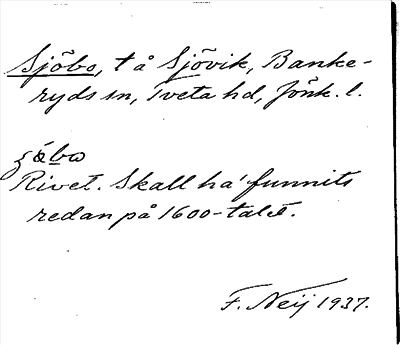 Sjöbo, t å Sjövik, Banke-
ryds sn, Tveta hd, Jönk. l.
Rivet. Skall ha funnits
redan på 1600-talet.
F. Neij 1937.